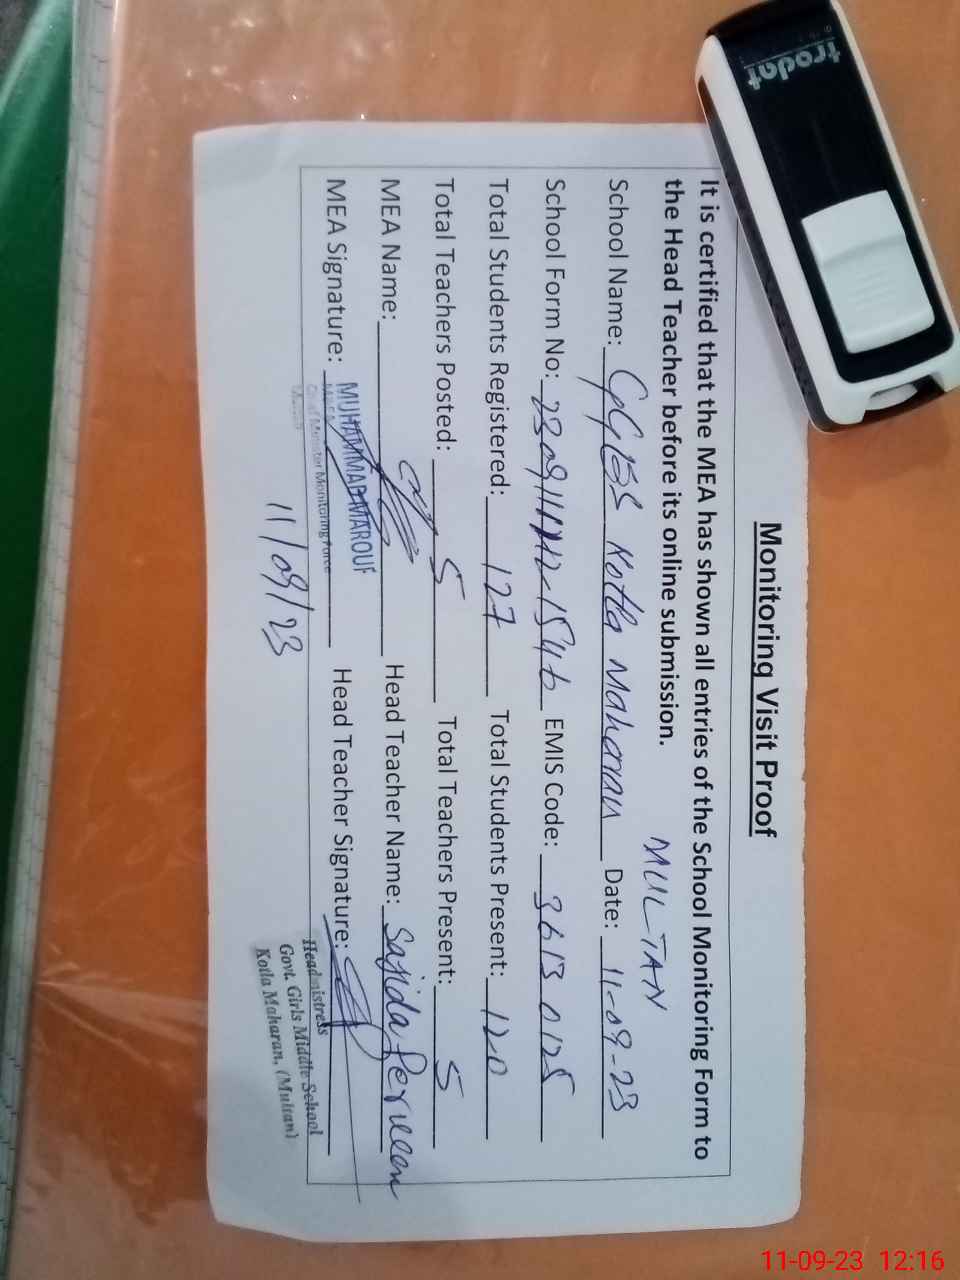 trodat
Monitoring Visit Proof
It is certified that the MEA has shown all entries of the School Monitoring Form to
the Head Teacher before its online submission.
MULTAN
School Name: GGES Kotla Maharan Date: 11-09-23
School Form No: EMIS Code: 36130125
Total Students Registered: 127 Total Students Present: 120
Total Teachers Posted: 5 Total Teachers Present: 5
MEA Name: Head Teacher Name: Sajida Perveen
MEA Signature: MUHAMMAD MAROUF Head Teacher Signature:
Chief Minister Monitoring Force
11/09/23
Headmistress
Govt. Girls Middle School
Kotla Maharan, (Multan)
11-09-23 12:16